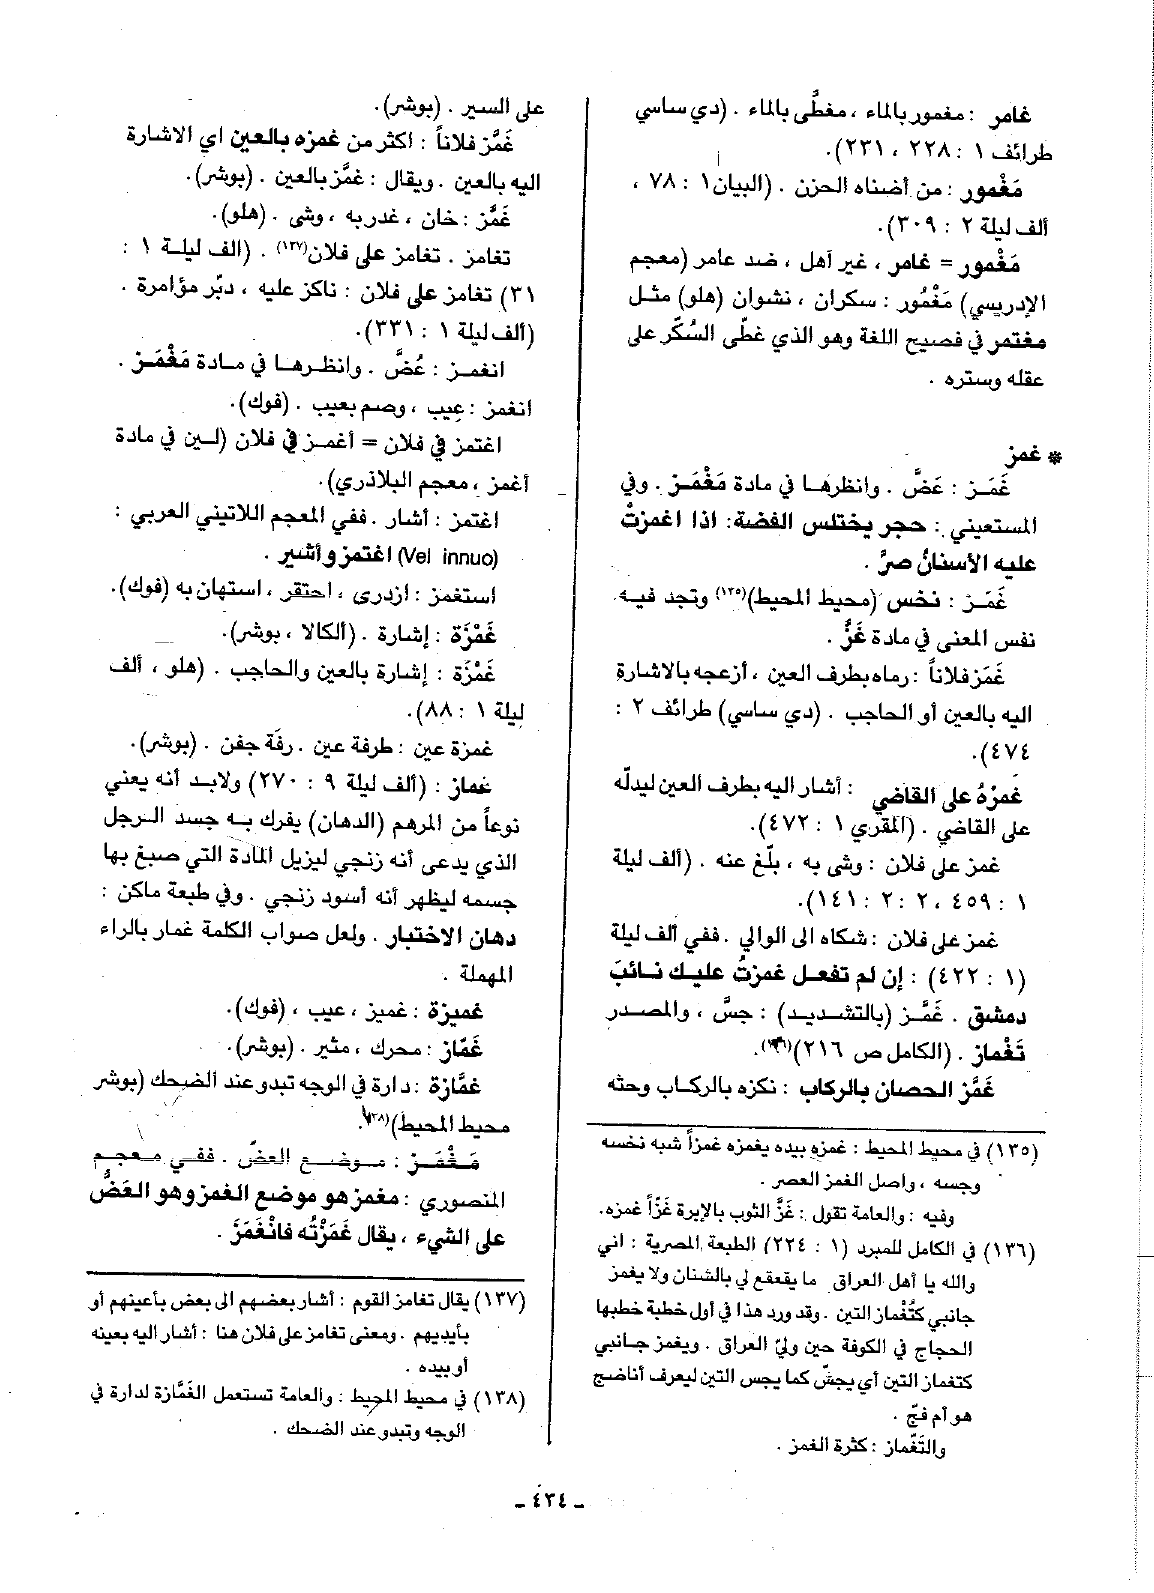 غامر : مغمور بالماء ، مغطَّى بالماء . (دي ساسي
طرائف ١ : ٢٢٨ ، ٢٣١).
مَغْمور : من أضناه الحزن . (البيان ١ : ٧٨ ،
ألف ليلة ٢ : ٣٠٩).
مَغْمور = غامر ، غير آهل ، ضد عامر (معجم
الإدريسي) مَغْمُور : سكران ، نشوان (هلو) مثل
مغتمر في فصيح اللغة وهو الذي غطّى السُكّر على
عقله وستره .
* غمز
غَمَـز : عَضَّ . وانظرهـا في مادة مَغْمَـز . وفي
المستعيني : حجر يختلس الفضة: اذا اغمزتْ
عليه الأسنانُ صرَّ .
غَمَـز : نخس (محيط المحيط)(١٣٥) وتجد فيـه
نفس المعنى في مادة غَزَّ .
غَمَز فلاناً : رماه بطرف العين ، أزعجه بالاشارة
اليه بالعين أو الحاجب . (دي ساسي) طرائف ٢ :
٤٧٤).
غَمزهُ على القاضي : أشار اليه بطرف العين ليدلّه
على القاضي . (المقري ١ : ٤٧٢).
غمز على فلان : وشى به ، بلّغ عنه . (ألف ليلة
١ : ٤٥٩ ، ٢ : ٢ : ١٤١).
غمز على فلان : شكاه الى الوالي . ففي ألف ليلة
(١ : ٤٢٢) : إن لم تفعـل غمزتُ عليـك نـائبَ
دمشق . غَمَّـز (بالتشديـد) : جسَّ ، والمصـدر
تَغْماز . (الكامل ص ٢١٦)(١٣٦).
غَمَّز الحصان بالركاب : نكزه بالركاب وحثه
(١٣٥) في محيط المحيط : غمزه بيده يغمزه غمزاً شبه نخسه
وجسه ، واصل الغمز العصر .
وفيه : والعامة تقول : غَزَّ الثوب بالإبرة غَزّاً غمزه.
(١٣٦) في الكامل للمبرد (١ : ٢٢٤) الطبعة المصرية : اني
والله يا أهل العراق ما يقعقع لي بالشنان ولا يغمز
جانبي كتَغْماز التين . وقد ورد هذا في أول خطبة خطبها
الحجاج في الكوفة حين وليّ العراق . ويغمز جـانبي
كتغماز التين أي يجسّ كما يجس التين ليعرف أناضج
هو أم فجّ .
والتَغْماز : كثرة الغمز .
على السير . (بوشر).
غَمَّز فلاناً : اكثر من غمزه بالعين اي الاشارة
اليه بالعين . ويقال : غمَّز بالعين . (بوشر).
غَمَّز : خان ، غدر به ، وشى . (هلو).
تغامز . تغامز على فلان(١٣٧) . (الف ليلـة ١ :
٣١) تغامز على فلان : ناكز عليه ، دبّر مؤامرة .
(ألف ليلة ١ : ٣٣١).
انغمـز : عُضَّ . وانظـرهـا في مـادة مَغْمَـز .
انغمز : عيب ، وصم بعيب . (فوك).
اغتمز في فلان = أغمـز في فلان (لـين في مادة
أغمز ، معجم البلاذري).
اغتمز : أشار . ففي المعجم اللاتيني العربي :
(Vel innuo) اغتمز وأشير .
استغمز : ازدرى ، احتقر ، استهان به (فوك).
غَمْزَة : إشارة . (ألكالا ، بوشر).
غَمْزَة : إشارة بالعين والحاجب . (هلو ، ألف
ليلة ١ : ٨٨).
غمزة عين : طرفة عين . رفّة جفن . (بوشر).
غماز : (ألف ليلة ٩ : ٢٧٠) ولابـد أنه يعني
نوعاً من المرهم (الدهان) يفرك بـه جسد الـرجل
الذي يدعى أنه زنجي ليزيل المادة التي صبغ بها
جسمه ليظهر أنه أسود زنجي . وفي طبعة ماكن :
دهان الاختبار . ولعل صواب الكلمة غمار بالراء
المهملة .
غميزة : غميز ، عيب ، (فوك).
غَمّاز : محرك ، مثير . (بوشر).
غمَّازة : دارة في الوجه تبدو عند الضحك (بوشر
محيط المحيط)(١٣٨).
مَغْمَـز : مـوضـع العضّ . ففـي معـجم
المنصوري : مغمز هو موضع الغمز وهو العَضُّ
على الشيء ، يقال غَمَزْتُه فانْغَمَزَ .
(١٣٧) يقال تغامز القوم : أشار بعضهم الى بعض بأعينهم أو
بأيديهم . ومعنى تغامز على فلان هنا : أشار اليه بعينه
أو بيده .
(١٣٨) في محيط المحيط : والعامة تستعمل الغَمَّازة لدارة في
الوجه وتبدو عند الضحك .
ـ ٤٣٤ ـ